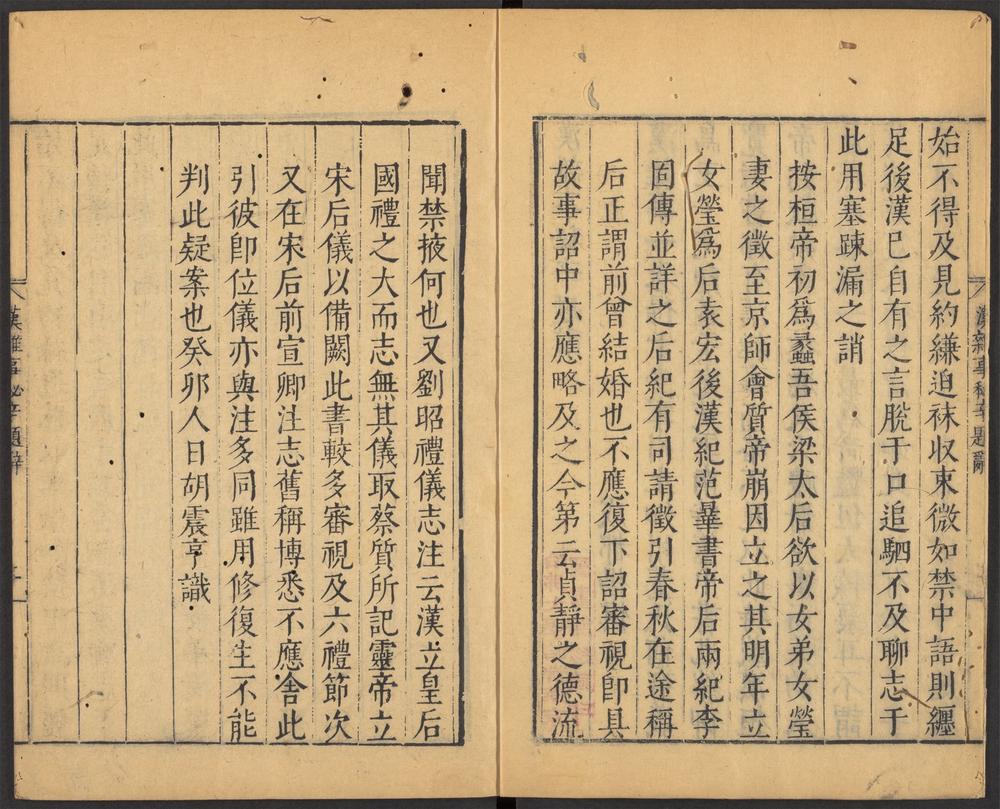 始不得及見約縑迫袜収束微如禁中語則纏
足後漢已自有之言脫于口追駟不及聊志于
此用塞踈漏之誚
按桓帝初爲蠡吾侯梁太后欲以女弟女瑩
妻之徵至京師會質帝崩因立之其明年立
女瑩爲后袁宏後漢紀范曄書帝后兩紀李
固傳並詳之后紀有司請徵引春秋在途稱
后正謂前曾結婚也不應復下詔審視卽具
故事詔中亦應略及之今第云貞靜之德流
漢雜事秘辛題辭
聞禁掖何也又劉昭禮儀志注云漢立皇后
國禮之大而志無其儀取蔡質所記靈帝立
宋后儀以備闕此書較多審視及六禮節次
又在宋后前宣卿注志舊稱博悉不應舍此
引彼卽位儀亦與注多同雖用修復生不能
判此疑案也癸卯人日胡震亨識
漢雜事祕辛題辭